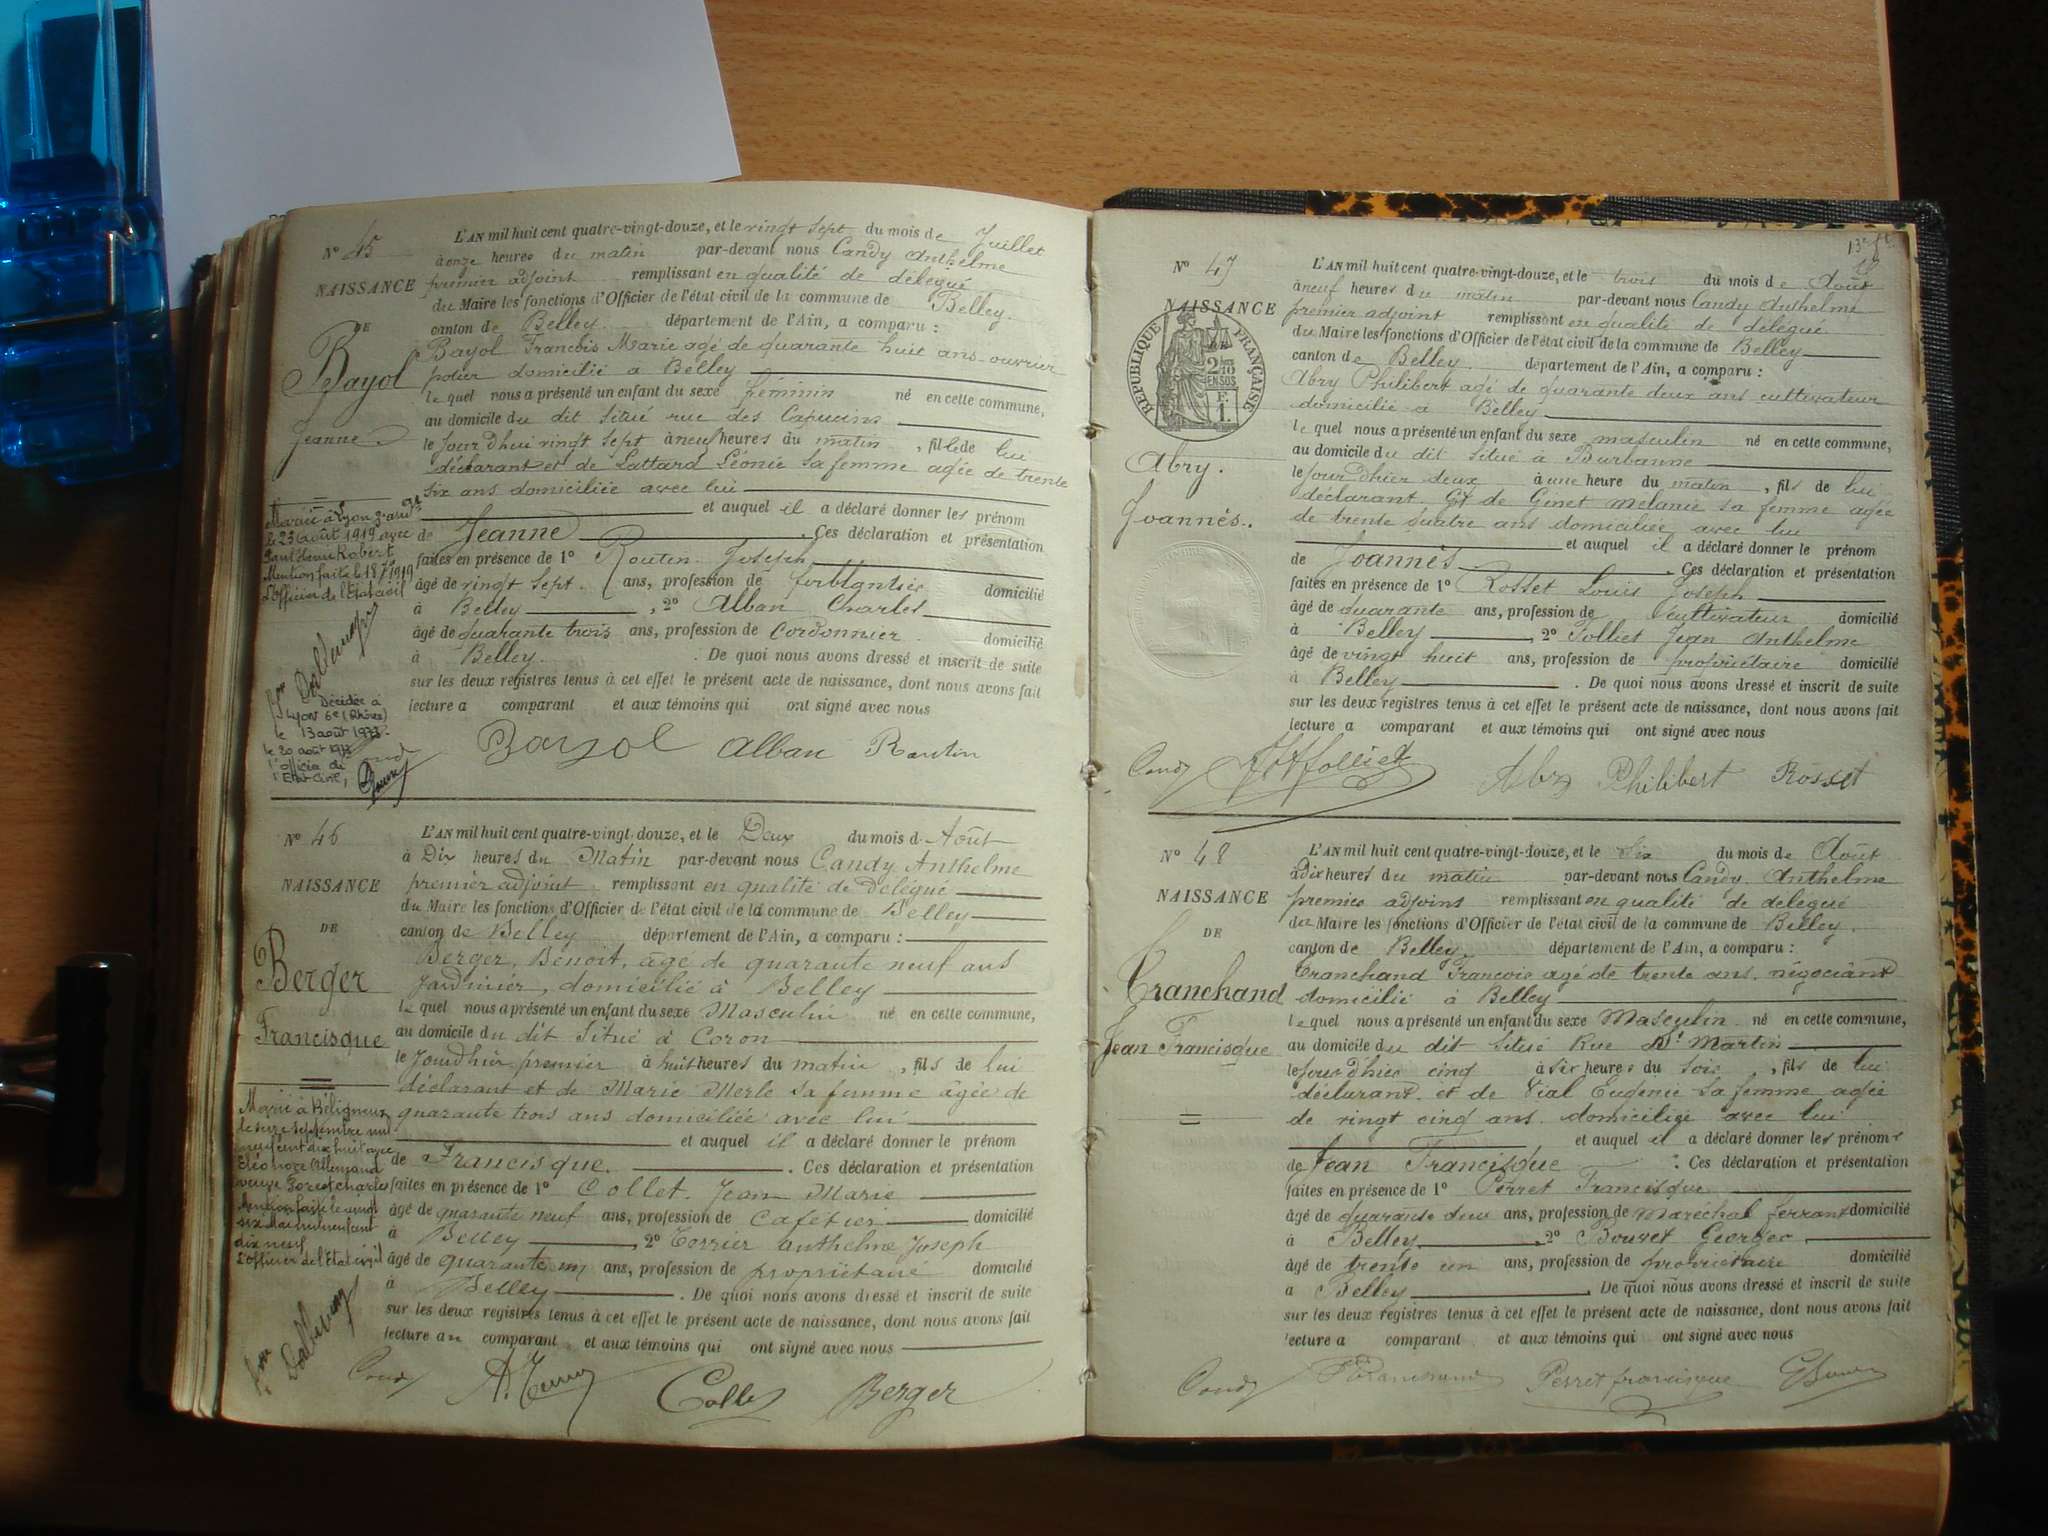 L'AN mil huit cent quatre-vingt-douze, et le vingt sept du mois de Juillet
N° 45
à onze heures du matin par-devant nous Candy Anthelme
premier adjoint remplissant en qualité de délégué
NAISSANCE
du Maire les fonctions d'Officier de l'état civil de la commune de Belley.
canton de Belley. département de l'Ain, a comparu :
DE
Bayol François Marie agé de quarante huit ans ouvrier
Bayol
potier domicilié à Belley
le quel nous a présenté un enfant du sexe féminin né en cette commune,
au domicile du dit situé rue des Capucins
Jeanne
le jour d'hui vingt sept à neuf heures du matin, fille de lui
déclarant et de Lattard Léonie sa femme agée de trente
six ans domiciliée avec lui
et auquel il a déclaré donner les prénom
de Jeanne. Ces déclaration et présentation
faites en présence de 1° Routin Joseph
âgé de vingt sept. ans, profession de ferblantier domicilié
à Belley, 2° Alban Charles
âgé de quarante trois ans, profession de Cordonnier. domicilié
à Belley. De quoi nous avons dressé et inscrit de suite
sur les deux registres tenus à cet effet le présent acte de naissance, dont nous avons fait
lecture a comparant et aux témoins qui ont signé avec nous
Mariée à Lyon 3e
le 23 août 1919 avec
Robert
Mention faite le 18 1919
L'Officier de l'Etat civil
Décédée à
Lyon 6e (Rhône)
le 13 août 1973.
le 20 août 1973
l'officier de
l'Etat Civil,
Bayol Alban Routin
N° 46
L'AN mil huit cent quatre-vingt-douze, et le Deux du mois d Août
à Dix heures du Matin par-devant nous Candy Anthelme
NAISSANCE
premier adjoint remplissant en qualité de Délégué
du Maire les fonctions d'Officier de l'état civil de la commune de Belley
DE
canton de Belley département de l'Ain, a comparu :
Berger, Benoit, âgé de quarante neuf ans
Berger
Jardinier, domicilié à Belley
le quel nous a présenté un enfant du sexe Masculin né en cette commune,
Francisque
au domicile du dit Situé à Coron
le Jourd'hier premier à huit heures du matin, fils de lui
déclarant et de Marie Merle sa femme âgée de
quarante trois ans domiciliée avec lui
et auquel il a déclaré donner le prénom
de Francisque. Ces déclaration et présentation
faites en présence de 1° Collet. Jean Marie
âgé de quarante neuf ans, profession de Cafetier domicilié
à Belley, 2° Terrier Anthelme Joseph
âgé de quarante un ans, profession de propriétaire domicilié
à Belley. De quoi nous avons dressé et inscrit de suite
sur les deux registres tenus à cet effet le présent acte de naissance, dont nous avons fait
lecture au comparant et aux témoins qui ont signé avec nous
Marié à Béligneux
le seize septembre mil
neuf cent dix huit avec
Eléonore Allemand
veuve Charles
Mention faite le vingt
six Mai mil neuf cent
dix neuf
L'officier de l'Etat civil
Candy Collet Berger
N° 47
L'AN mil huit cent quatre-vingt-douze, et le trois du mois de Août
à neuf heures du matin par-devant nous Candy Anthelme
NAISSANCE
premier adjoint remplissant en qualité de délégué
du Maire les fonctions d'Officier de l'état civil de la commune de Belley
RÉPUBLIQUE FRANÇAISE
canton de Belley. département de l'Ain, a comparu :
Abry Philibert agé de quarante deux ans cultivateur
domicilié à Belley
le quel nous a présenté un enfant du sexe masculin né en cette commune,
Abry.
au domicile du dit situé à Burbanne
le jour d'hier deux à une heure du matin, fils de lui
Joannès.
déclarant. Et de Ginet Mélanie sa femme agée
de trente quatre ans domiciliée avec lui
et auquel il a déclaré donner le prénom
de Joannès. Ces déclaration et présentation
faites en présence de 1° Rosset Louis Joseph
âgé de quarante ans, profession de Cultivateur domicilié
à Belley, 2° Tolliet Jean Anthelme
âgé de vingt huit ans, profession de propriétaire domicilié
à Belley. De quoi nous avons dressé et inscrit de suite
sur les deux registres tenus à cet effet le présent acte de naissance, dont nous avons fait
lecture a comparant et aux témoins qui ont signé avec nous
Candy Tolliet Abry Philibert Rosset
N° 48
L'AN mil huit cent quatre-vingt-douze, et le Six du mois de Août
à dix heures du matin par-devant nous Candy Anthelme
NAISSANCE
premier adjoint remplissant en qualité de délégué
du Maire les fonctions d'Officier de l'état civil de la commune de Belley.
DE
canton de Belley. département de l'Ain, a comparu :
Tranchand François agé de trente ans, négociant
Tranchand
domicilié à Belley
le quel nous a présenté un enfant du sexe Masculin né en cette commune,
Jean Francisque
au domicile du dit situé Rue St Martin
le jour d'hier cinq à six heures du soir, fils de lui
déclarant. et de Vial Eugénie sa femme agée
de vingt cinq ans. domiciliée avec lui
et auquel il a déclaré donner les prénoms
de Jean Francisque. Ces déclaration et présentation
faites en présence de 1° Perret Francisque
âgé de quarante deux ans, profession de Maréchal ferrant domicilié
à Belley, 2° Bouvet Georges
âgé de trente un ans, profession de propriétaire domicilié
à Belley. De quoi nous avons dressé et inscrit de suite
sur les deux registres tenus à cet effet le présent acte de naissance, dont nous avons fait
lecture a comparant et aux témoins qui ont signé avec nous
Candy Tranchand Perret francisque